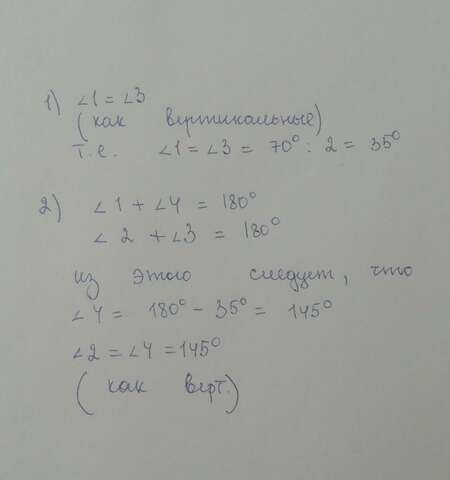 1) ∠1 = ∠3
(как вертикальные)
т.е. ∠1 = ∠3 = 70° : 2 = 35°
2) ∠1 + ∠4 = 180°
∠2 + ∠3 = 180°
из этого следует, что
∠4 = 180° - 35° = 145°
∠2 = ∠4 = 145°
(как верт.)